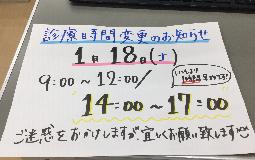 診療時間変更のお知らせ
1月18日(土)
9:00〜12:00/
14:00〜17:00
ご迷惑をおかけしますが宜しくお願い致します